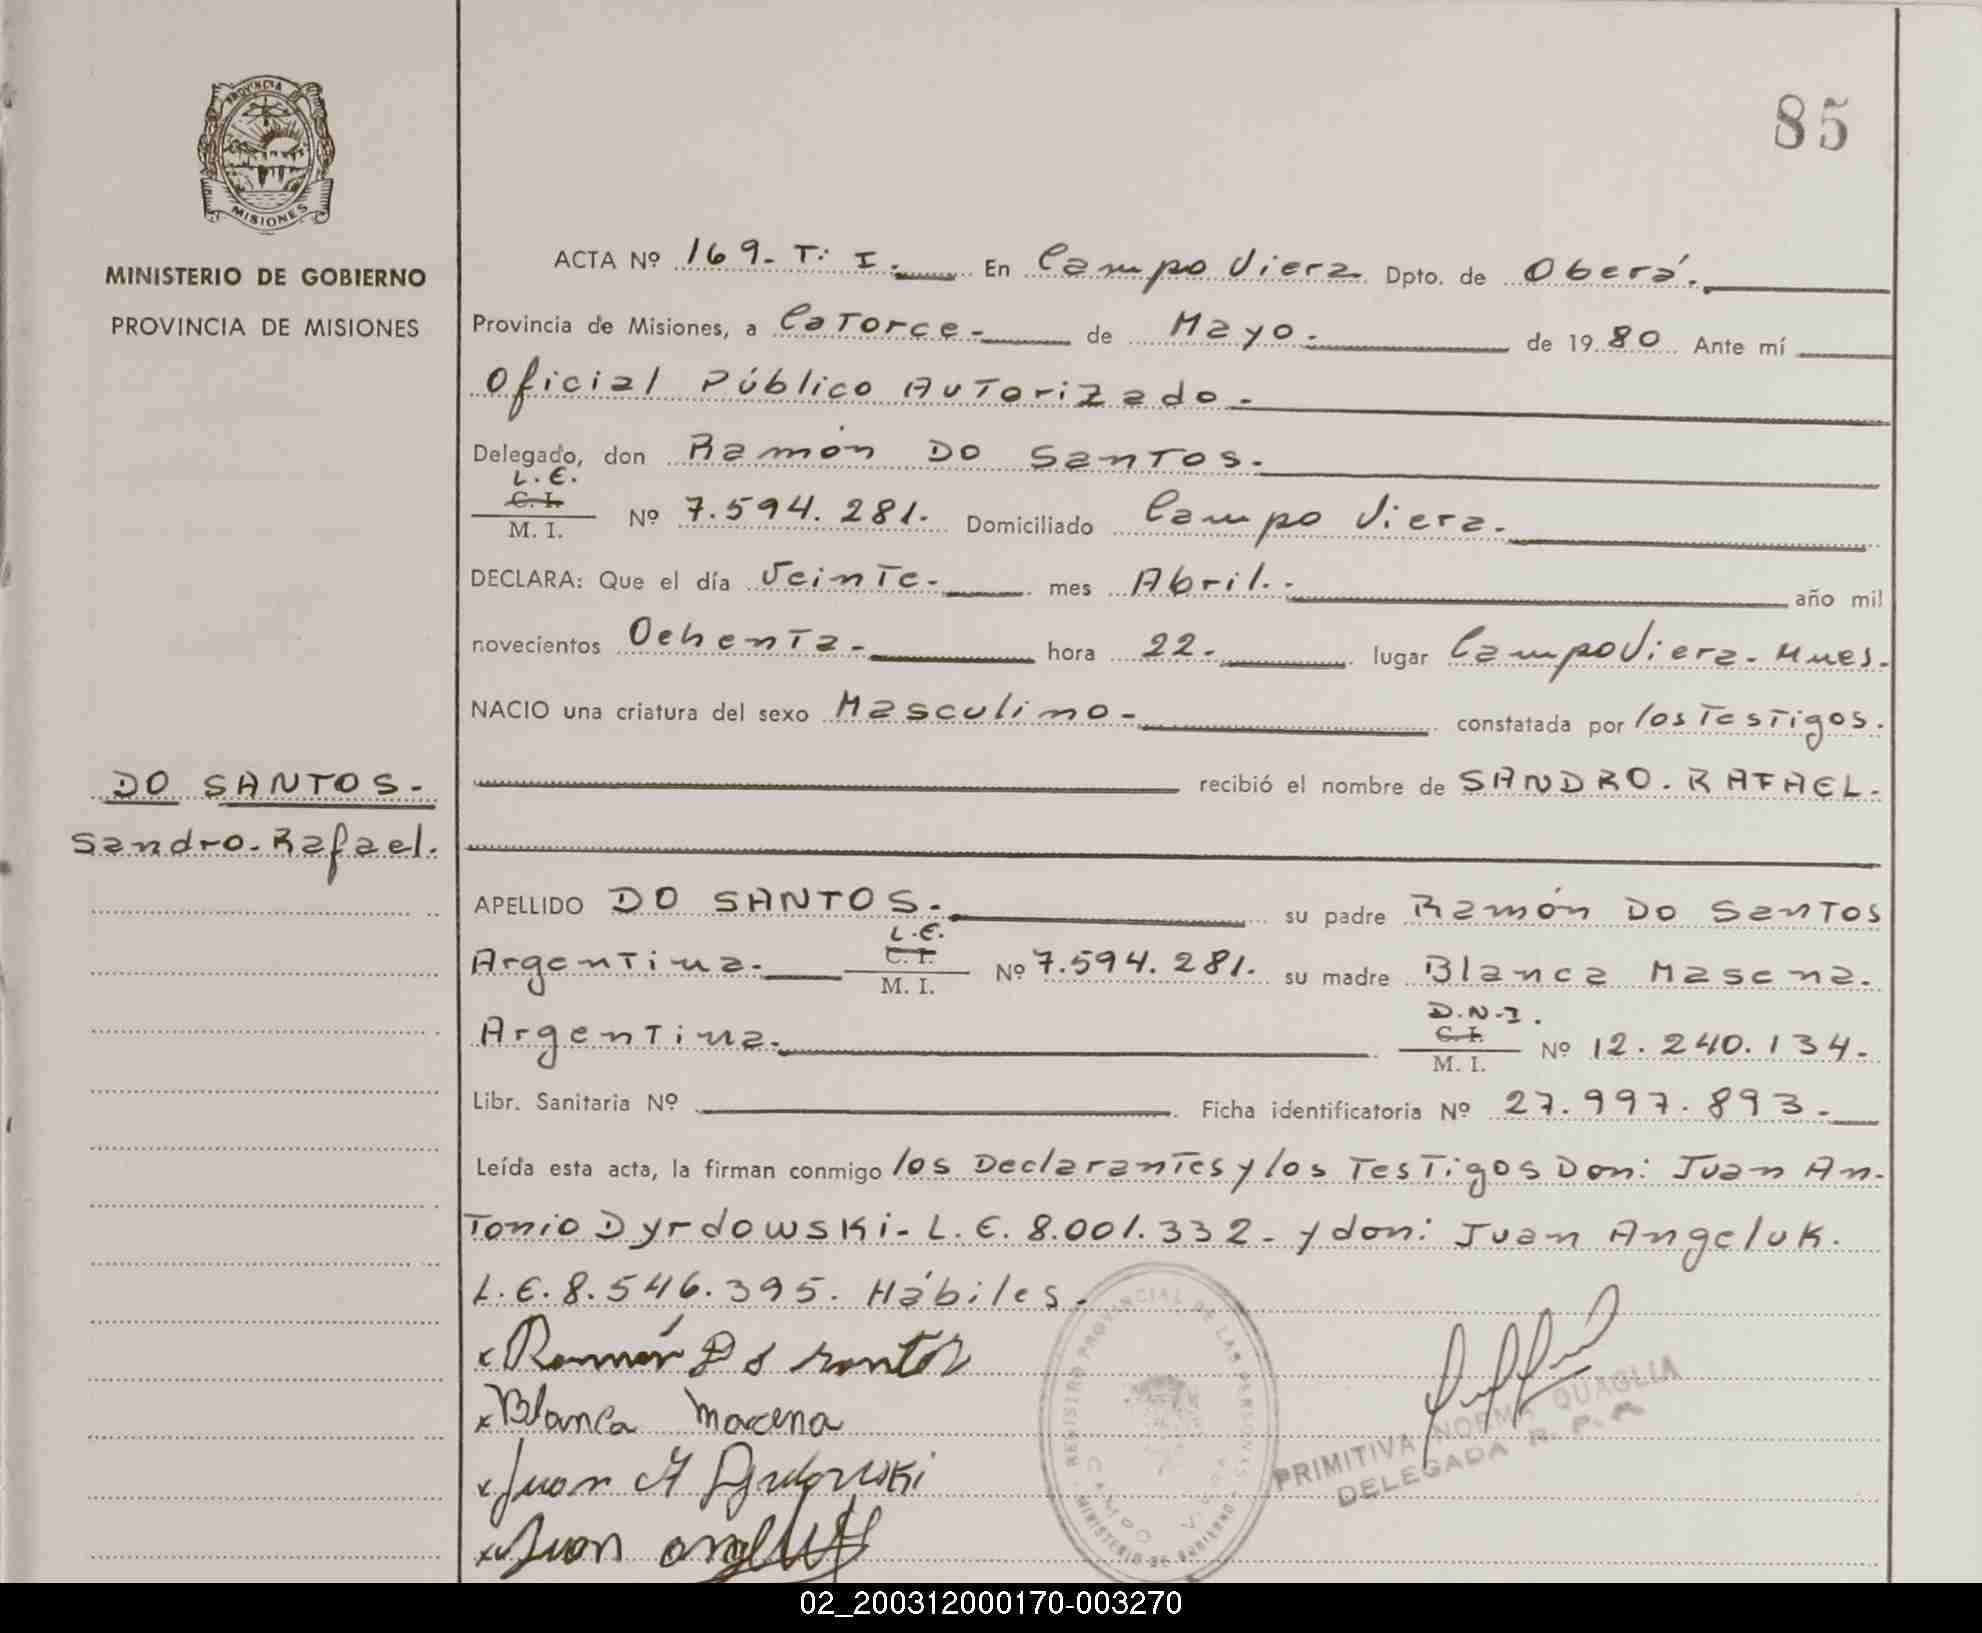 PROVINCIA
MISIONES
MINISTERIO DE GOBIERNO
PROVINCIA DE MISIONES
DO SANTOS.-
Sandro.Rafael.
85
ACTA Nº 169.- T: I.- En Campo Viera Dpto. de Oberá.-
Provincia de Misiones, a Catorce.- de Mayo.- de 1980 Ante mí
Oficial Público Autorizado.-
Delegado, don Ramón DO Santos.-
L.E.
C. I.
M. I.
Nº 7.594.281. Domiciliado Campo Viera.-
DECLARA: Que el día Veinte.- mes Abril.- año mil
novecientos Ochenta.- hora 22.- lugar Campo Viera.- Mnes.
NACIO una criatura del sexo Masculino.- constatada por los Testigos.
recibió el nombre de SANDRO.RAFAEL.-
APELLIDO DO SANTOS.- su padre Ramón Do Santos
L.E.
C. I.
M. I.
Argentina.- Nº 7.594.281. su madre Blanca Masena.
D.N.I.
C. I.
M. I.
Argentina.- Nº 12.240.134.-
Libr. Sanitaria Nº Ficha identificatoria Nº 27.997.893.-
Leída esta acta, la firman conmigo los Declarantes y los Testigos Don: Juan An-
tonio Dyrdowski.- L.E. 8.001.332.- y don: Juan Angeluk.
L.E. 8.546.395. Hábiles.-
x Ramón Do santos
x Blanca macena
x Juan A Dyrdowski
x Juan
REGISTRO PROVINCIAL DE LAS PERSONAS
MINISTERIO DE GOBIERNO
CAMPO
PRIMITIVA NORMA QUAGLIA
DELEGADA R. P. P.
02_200312000170-003270